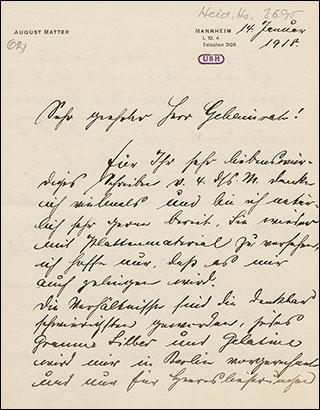 Heid. Hs. 3695
AUGUST MATTER
MANNHEIM 14. Januar
L 10. 4
Telephon 3129
1918.
UBH
Sehr geehrter Herr Geheimrat!
Für Ihr sehr liebenswür-
diges Schreiben v. 4. dfs M. danke
ich vielmals und bin ich natür-
lich sehr gerne bereit, Sie wieder
mit Plattenmaterial zu versehen,
ich hoffe nur, daß es mir
auch gelingen wird.
Die Verhältnisse sind die denkbar
schwierigsten geworden, jedes
Gramm Silber und Gelatine
wird mir in Berlin vorgerechnet
und nur für Heereslieferungen